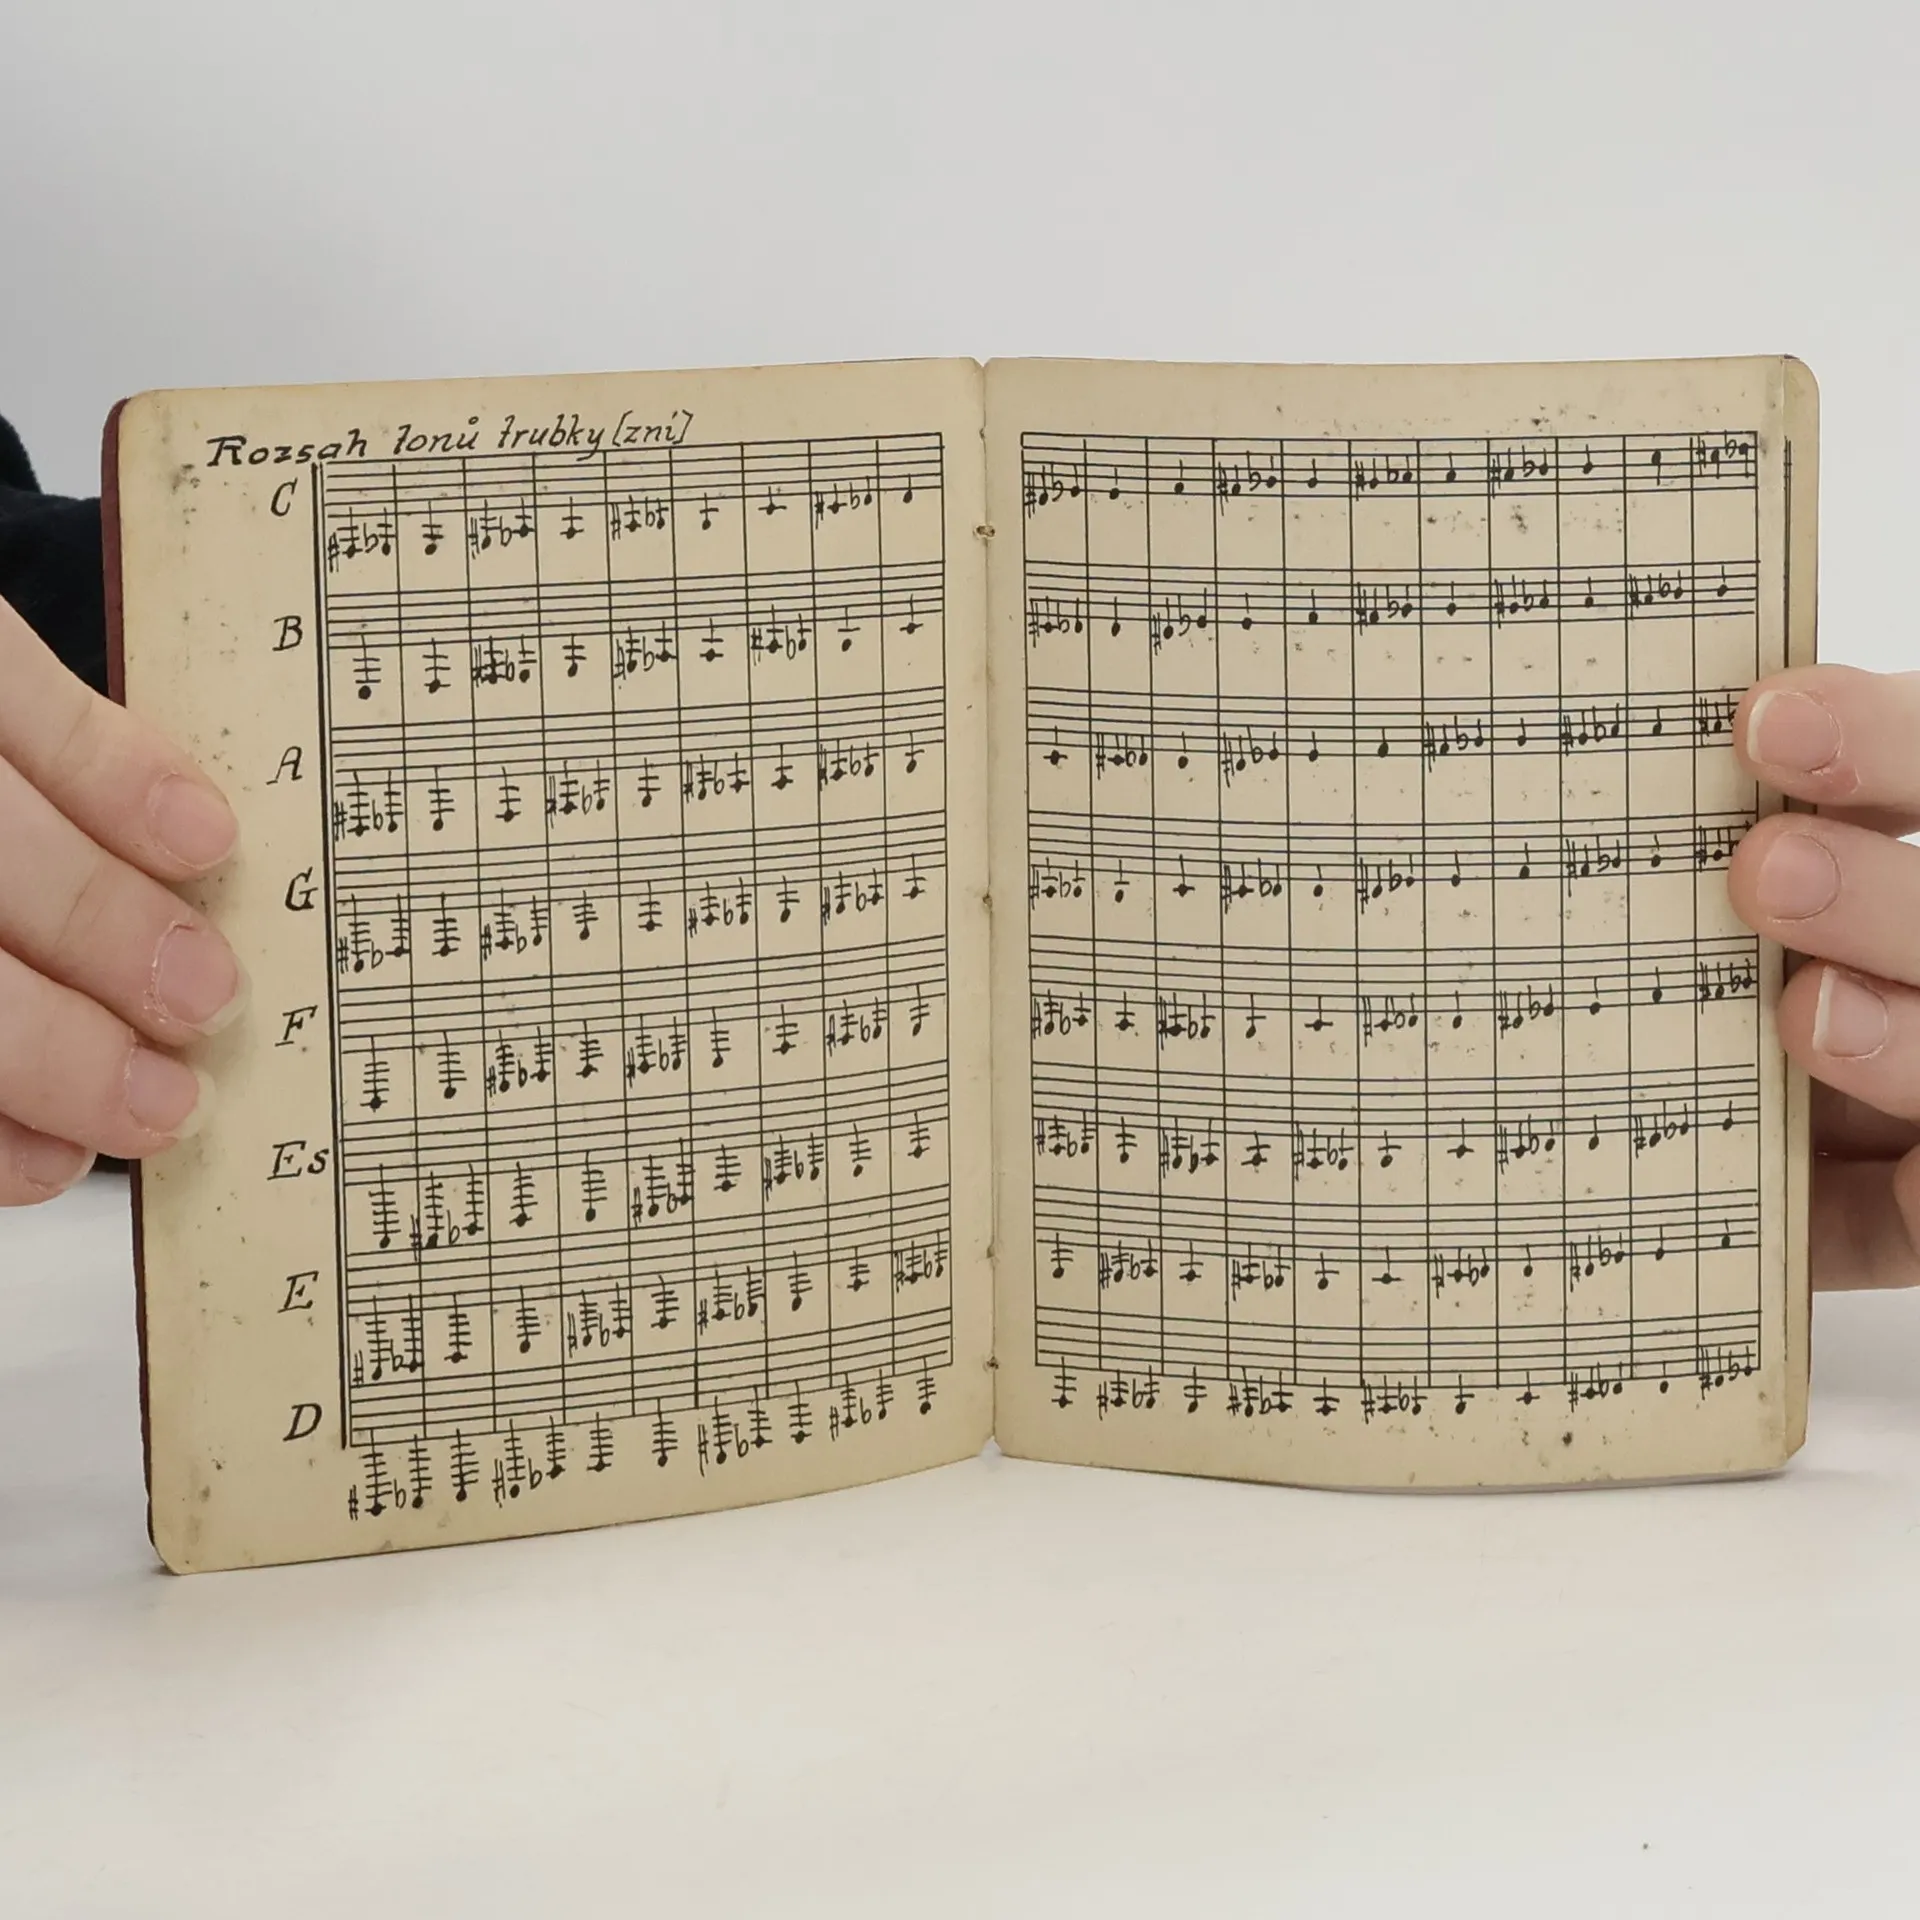 Rozsah tonů trubky [zní]
C
B
A
G
F
Es
E
D